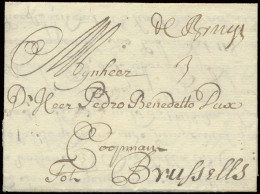 de Bruyn
Mynheer
3
Dr Heer Pedro Benedetto Dux
Coopman
Tot Brussells